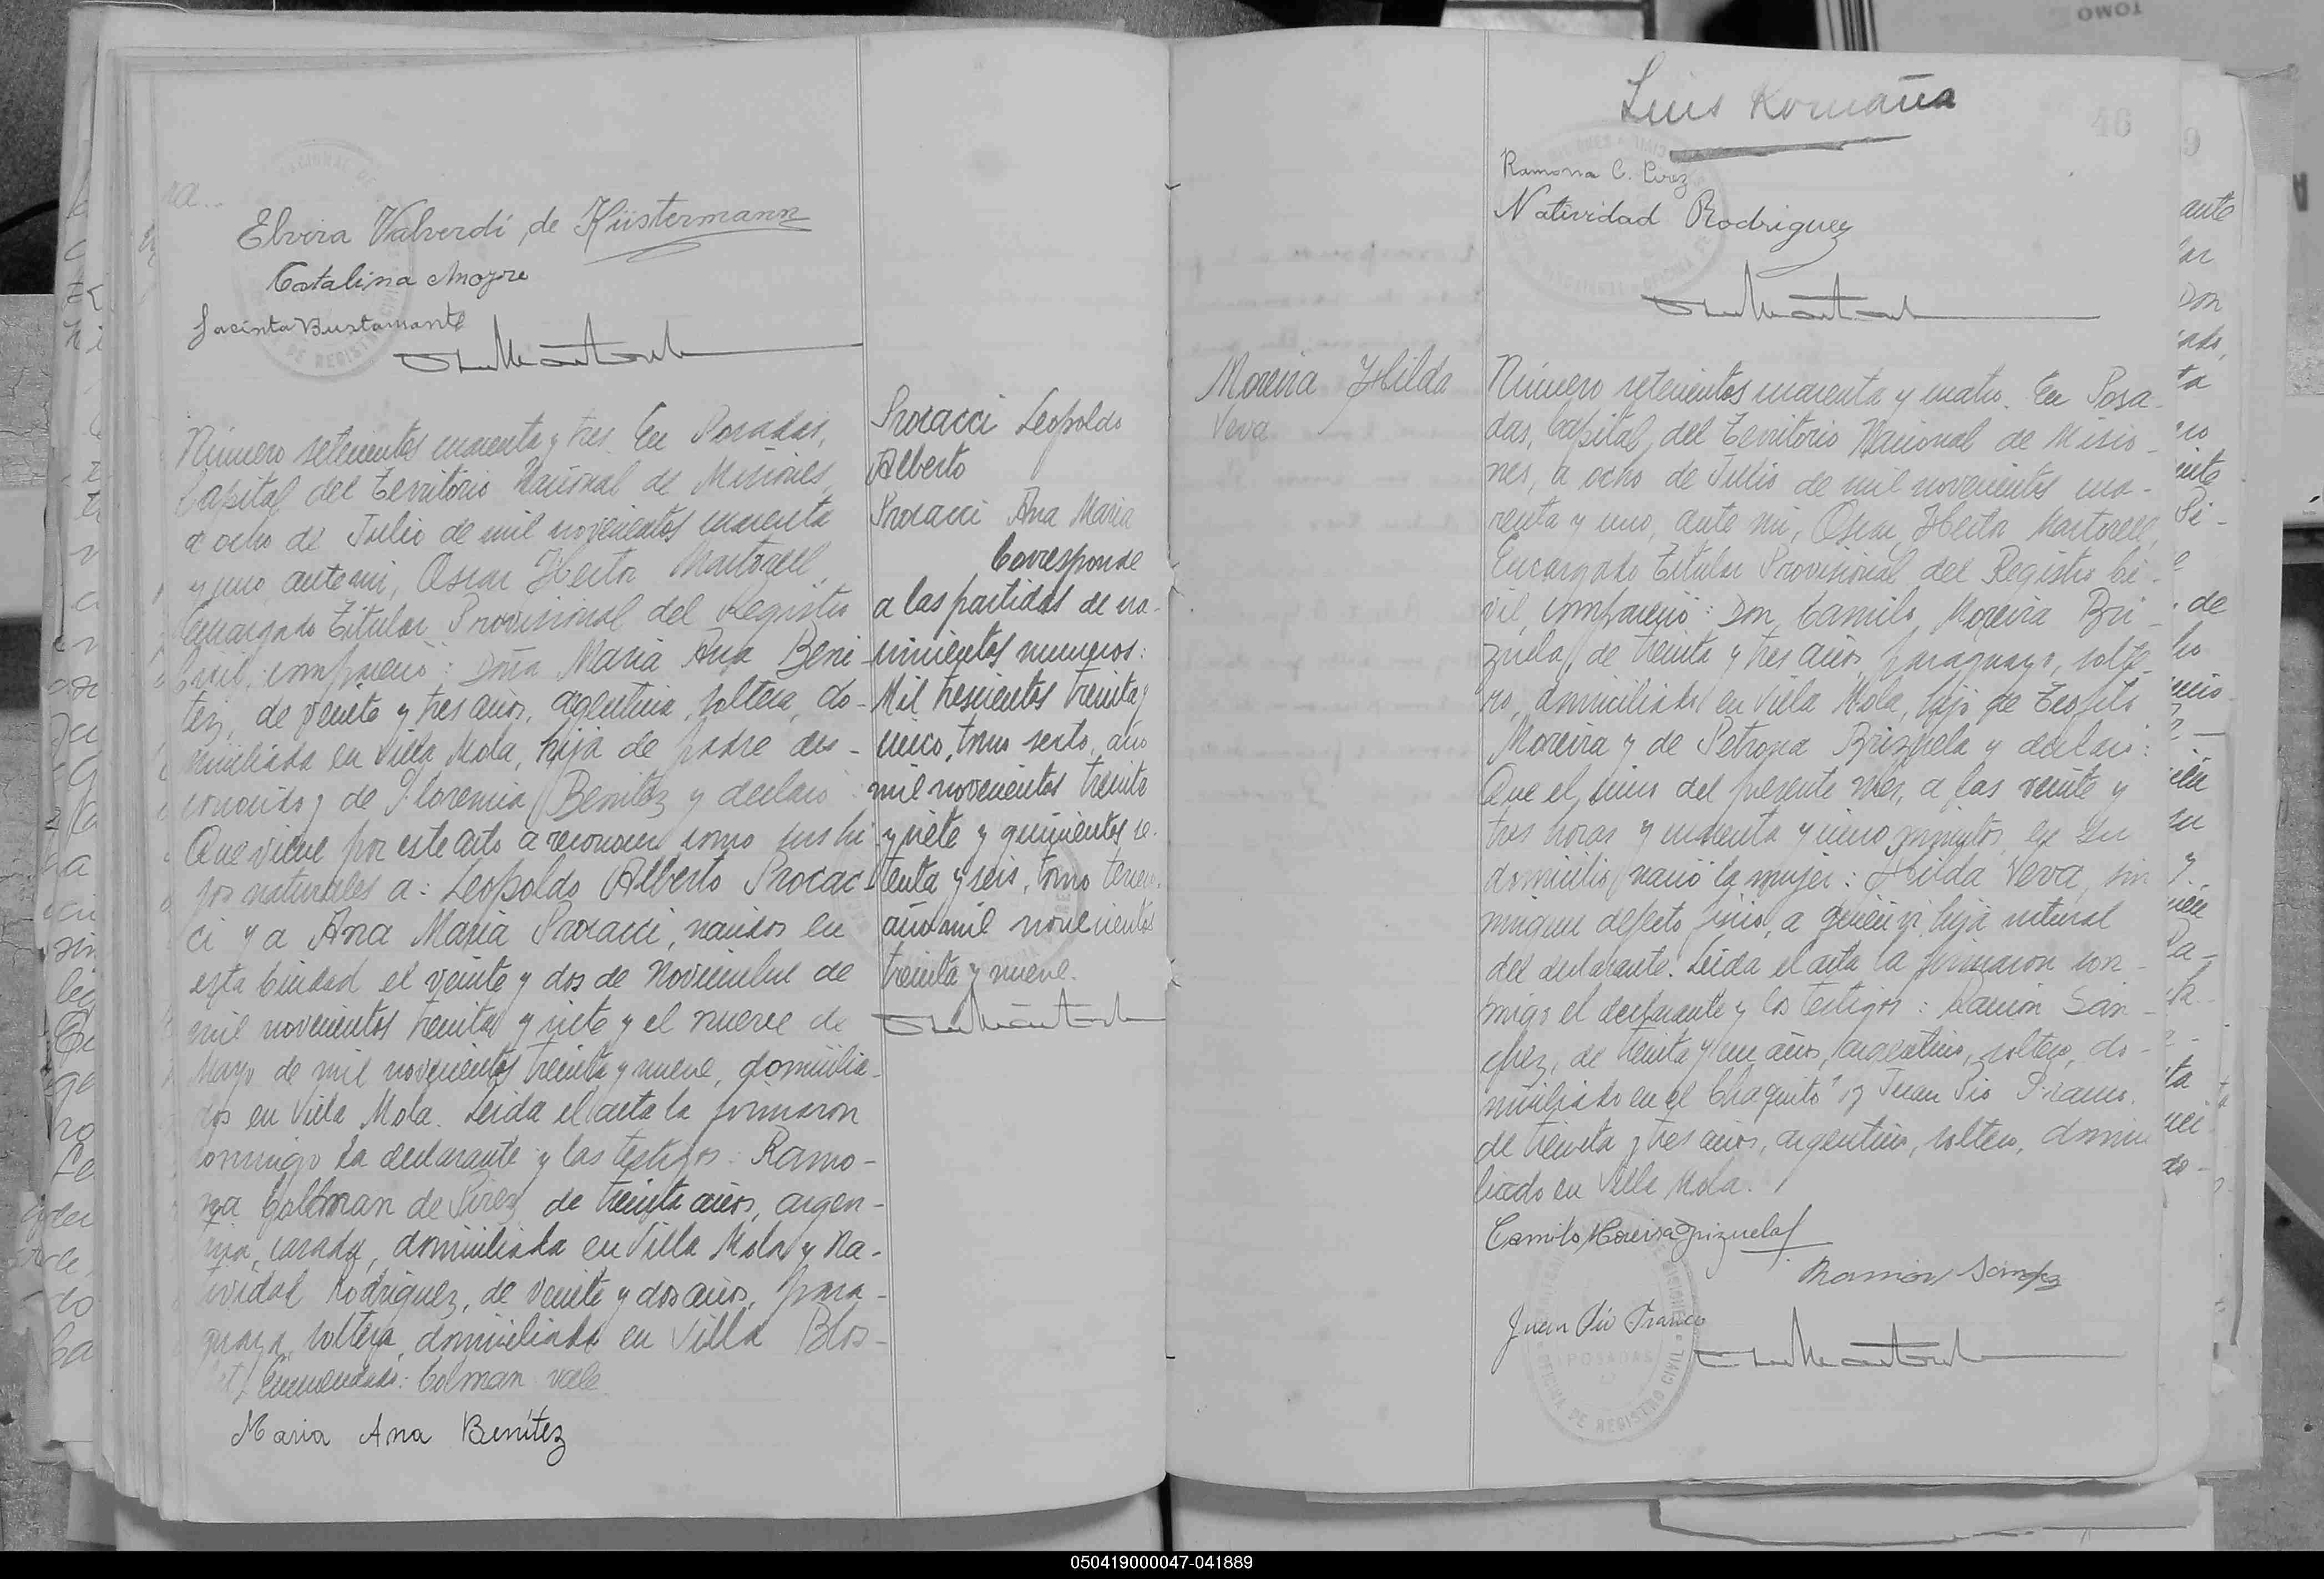 Elvira Valverdi de Küstermann
Catalina Moyre
Jacinta Bustamante
Número setecientos cuarenta y tres. En Posadas,
Capital del Territorio Nacional de Misiones,
a ocho de Julio de mil novecientos cuarenta
y uno, ante mi, Oscar Hector Martorell,
Encargado Titular Provisional del Registro
Civil, compareció: Doña Maria Ana Beni-
tez, de veinte y tres años, argentina, soltera, do-
miciliada en Villa Mola, hija de padre des-
conocido y de Florencia Benitez y declaró:
Que viene por este acto a reconocer como sus hi-
jos naturales a: Leopoldo Alberto Procac-
ci y a Ana Maria Procacci, nacidos en
esta Ciudad el veinte y dos de Noviembre de
mil novecientos treinta y siete y el nueve de
Mayo de mil novecientos treinta y nueve, domicilia-
dos en Villa Mola. Leida el acta la firmaron
conmigo la declarante y las testigos: Ramo-
na Collman de Pirez de treinta años, argen-
tina, casada, domiciliada en Villa Mola y Na-
tividad Rodriguez, de veinte y dos años, para-
guaya, soltera, domiciliada en Villa Blos-
set) Enmendado: Colman vale
Maria Ana Benítez
Procacci Leopoldo
Alberto
Procacci Ana Maria
Corresponde
a las partidas de na-
cimientos numeros:
Mil trescientos treinta y
cinco, tomo sexto, año
mil novecientos treinta
y siete y quinientos se-
tenta y seis, tomo tercero,
año mil novecientos
treinta y nueve.
Luis Romaña
46
Ramona C. Pirez
Natividad Rodriguez
Moreira Hilda
Veva
Número setecientos cuarenta y cuatro. En Posa-
das, Capital del Territorio Nacional de Misio-
nes, a ocho de Julio de mil novecientos cua-
renta y uno, ante mi, Oscar Hector Martorell,
Encargado Titular Provisional del Registro Ci-
vil, compareció: Don Camilo Moreira Bri-
zuela, de treinta y tres años, paraguayo, solte-
ro, domiciliado en Villa Mola, hijo de Teofilo
Moreira y de Petrona Brizuela y declaró:
Que el cinco del presente mes, a las veinte y
tres horas y cuarenta y cinco minutos, en su
domicilio nació la mujer: Hilda Veva, sin
ningun defecto fisico, a quien vi, hija natural
del declarante. Leida el acta la firmaron con-
migo el declarante y los testigos: Ramón Sán-
chez, de treinta y un años, argentino, soltero, do-
miciliado en el "Chaquito" y Juan Pio Franco,
de treinta y tres años, argentino, soltero, domici-
liado en Villa Mola.
Camilo Moreira Brizuela
Ramon Sanchez
Juan Pio Franco
POSADAS
OFICINA DE REGISTRO CIVIL
TOMO
050419000047-041889